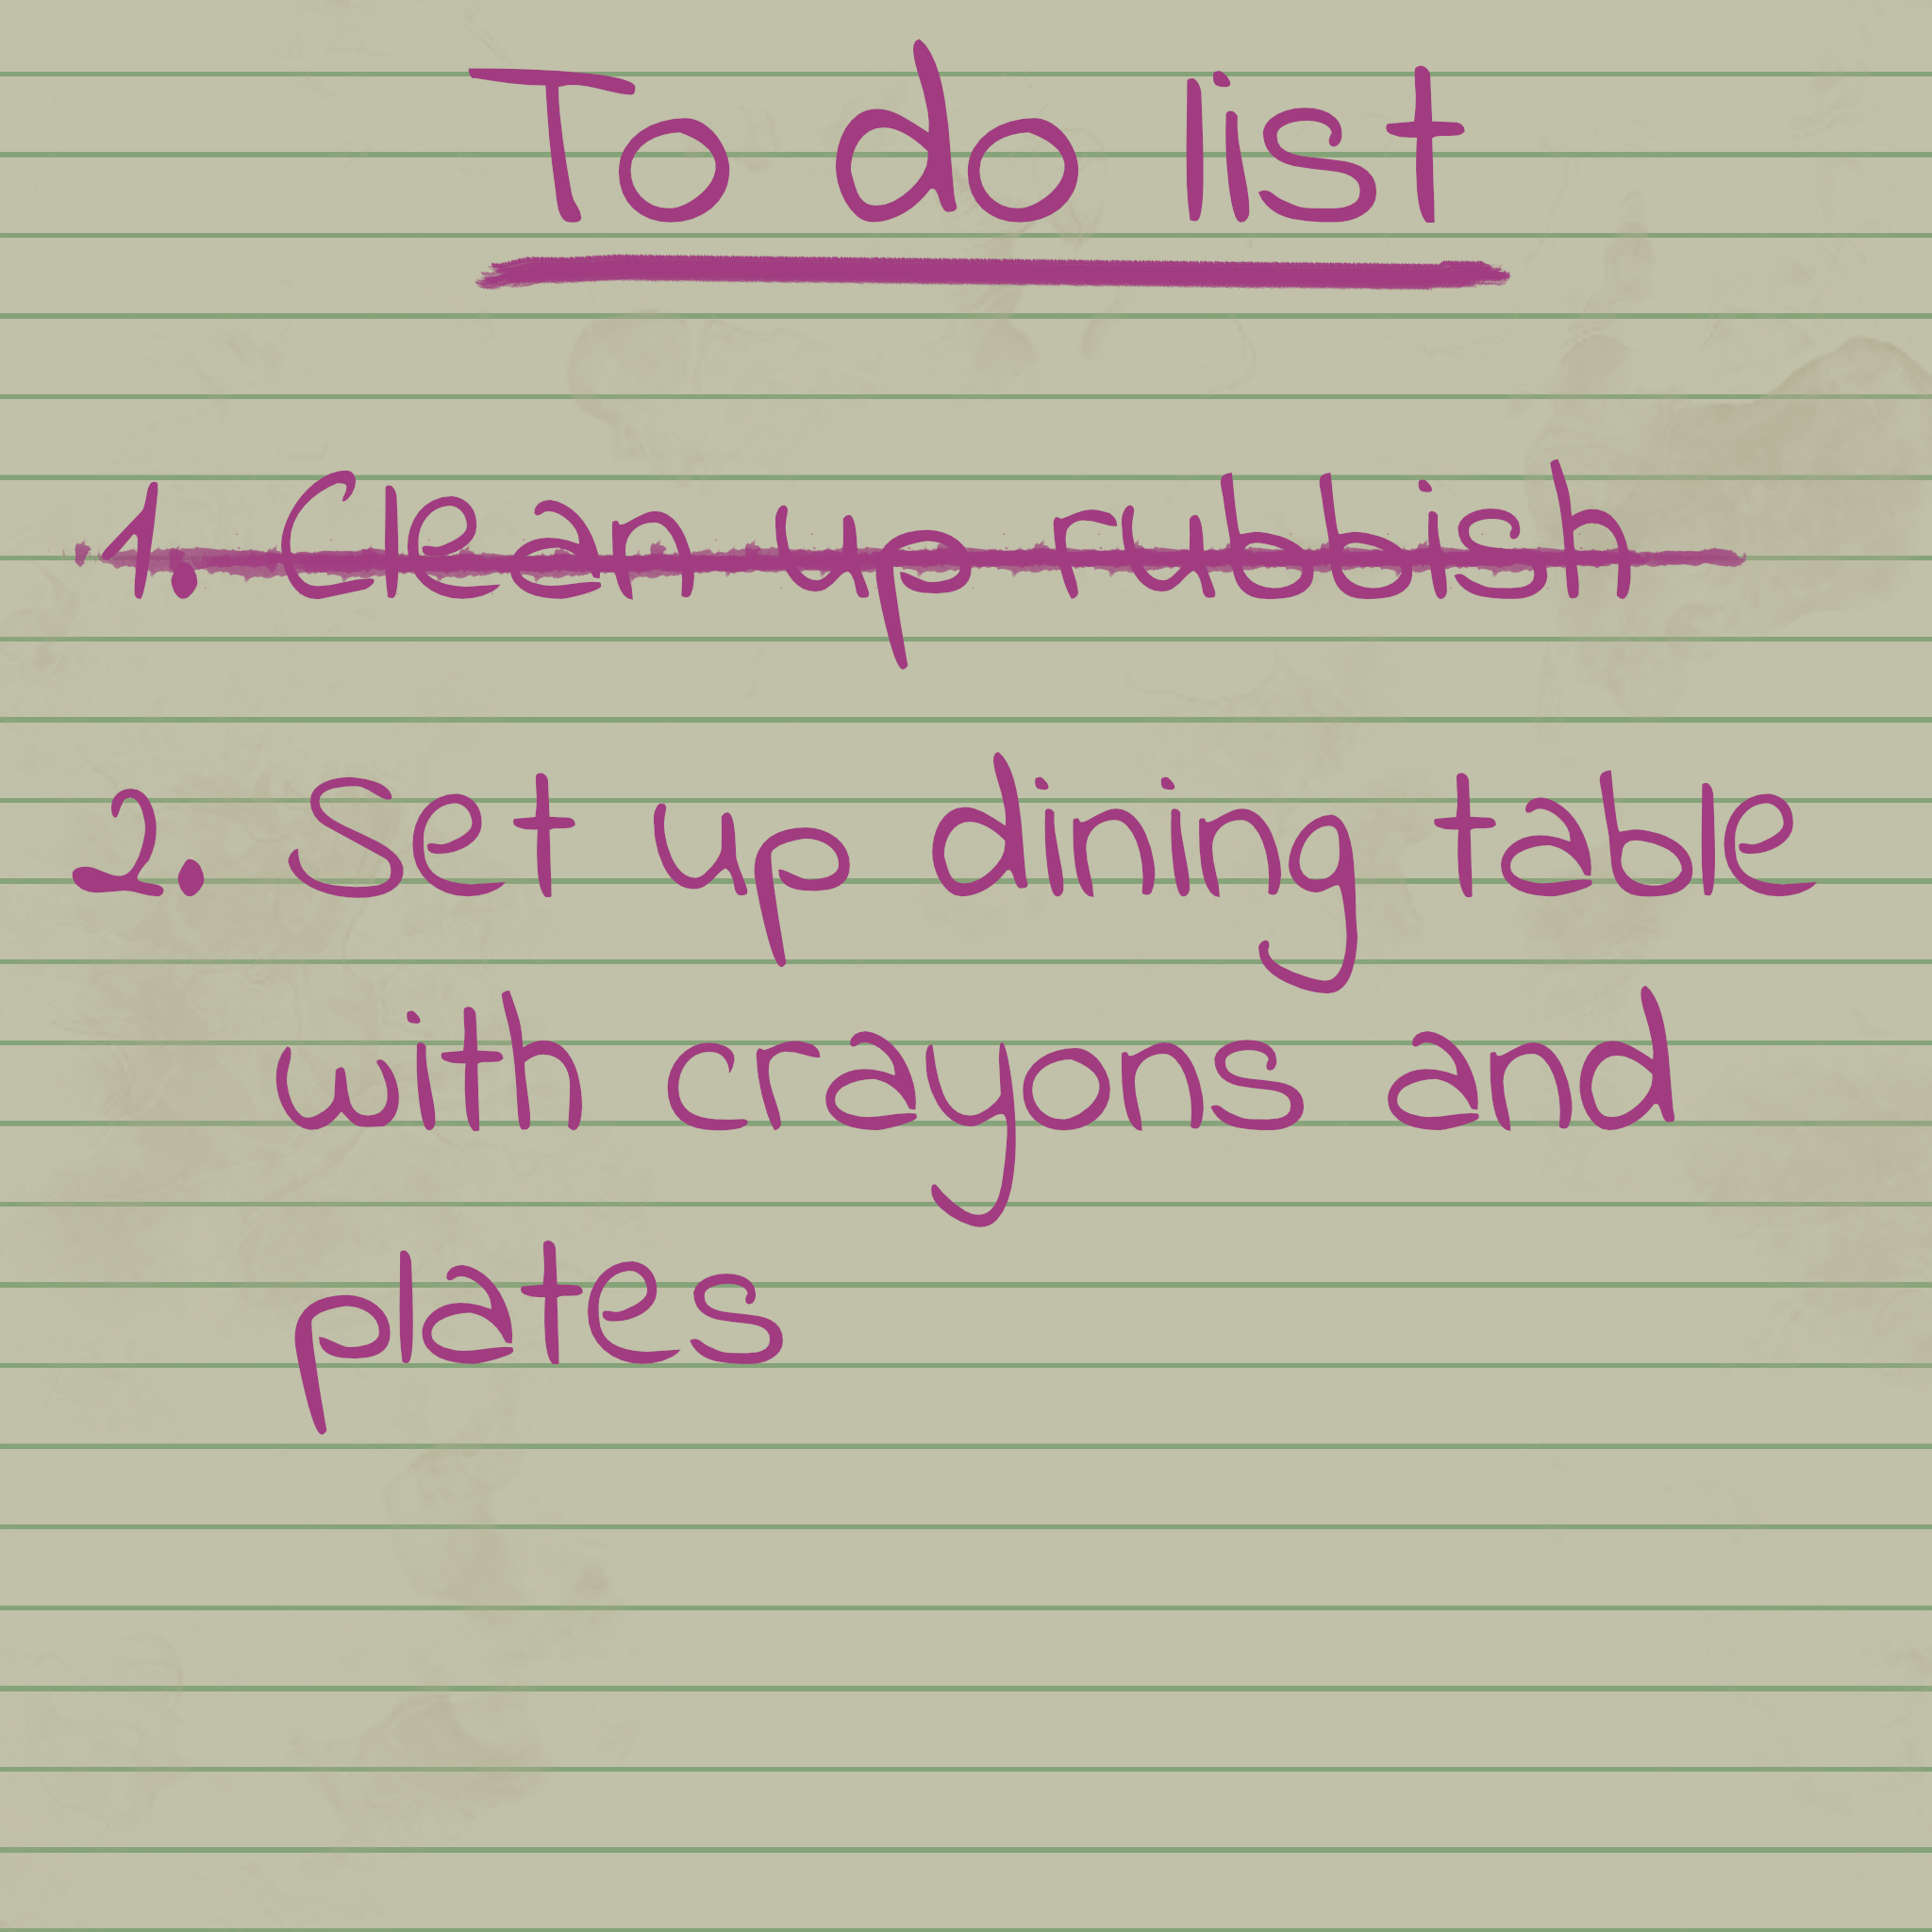 To do list
1. Clean up rubbish
2. Set up dining table
with crayons and
plates